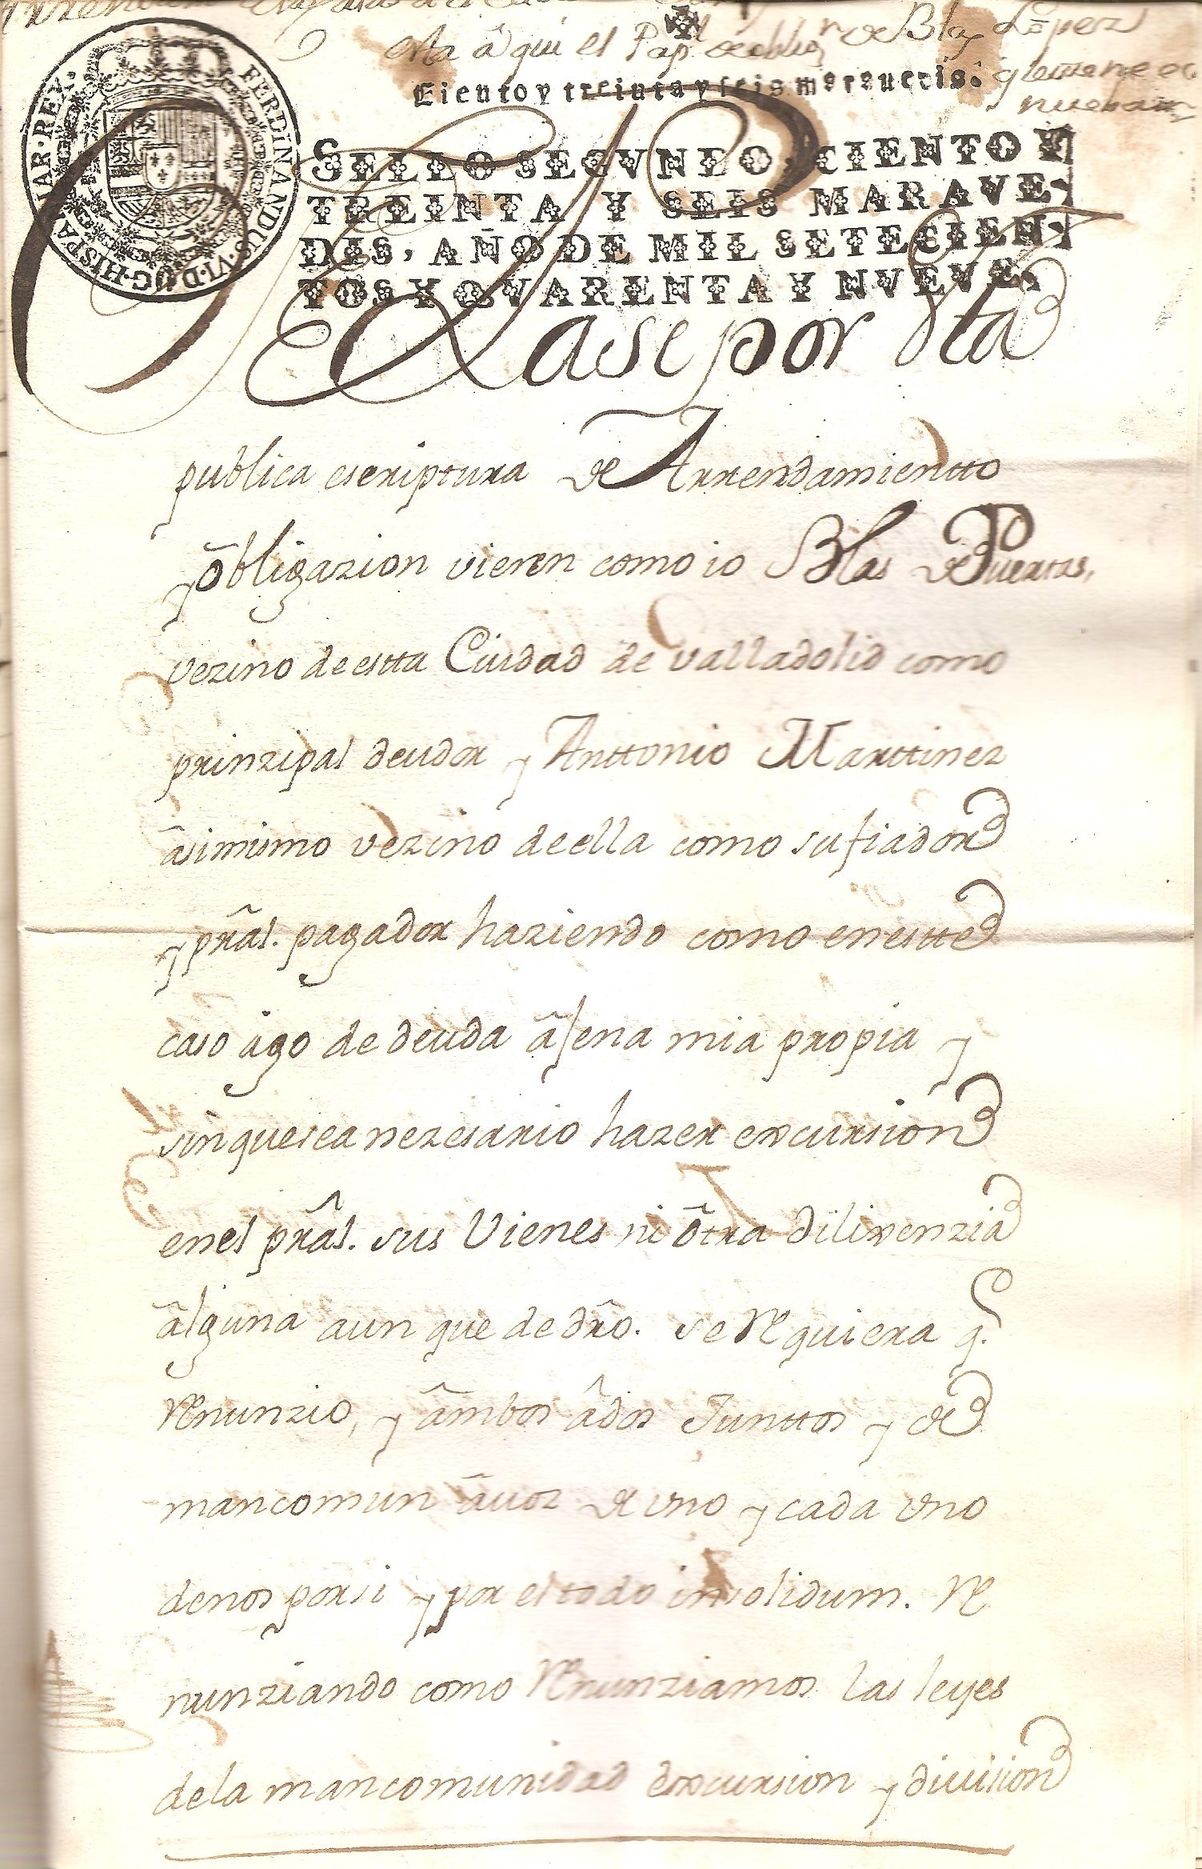 esta aqui el Pap.l de oblig.n de Blas Lopez
Ciento y treinta y seis marauedis.
FERDINANDUS·VI·D·G·HISPANIAR·REX·
SELLO SEGVNDO, CIENTO Y
TREINTA Y SEIS MARAVE-
DIS, AÑO DE MIL SETECIEN-
TOS Y QVARENTA Y NVEVE.
ase por esta
publica escriptura de Arrendamientto
y obligazion vieren como io Blas de Puertas,
vezino de estta Ciudad de valladolid como
prinzipal deudor y Anttonio Marttinez
asimismo vezino de ella como su fiador
y prãl. pagador haziendo como en estte
caso ago de deuda ajena mia propia y
sin que sea nezesario hazer excursion
en el prãl. sus Vienes ni otra dilixenzia
alguna aun que de dr̃o. se requiera q.
renunzio, y ambos ados Junttos y de
mancomun a uoz de vno y cada vno
de nos por si y por el todo insolidum. re
nunziando como renunziamos las leyes
de la mancomunidad excursion y diuision